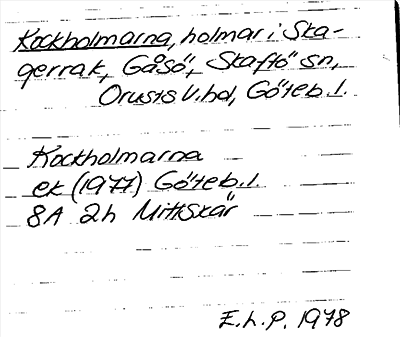 Kockholmarna, holmar i Ska-
gerrak, Gåsö, Skaftö sn,
Orusts V. hd, Göteb. l.
Kockholmarna
ek (1977) Göteb. l.
8A 2h Mittskär
E.h.P. 1978